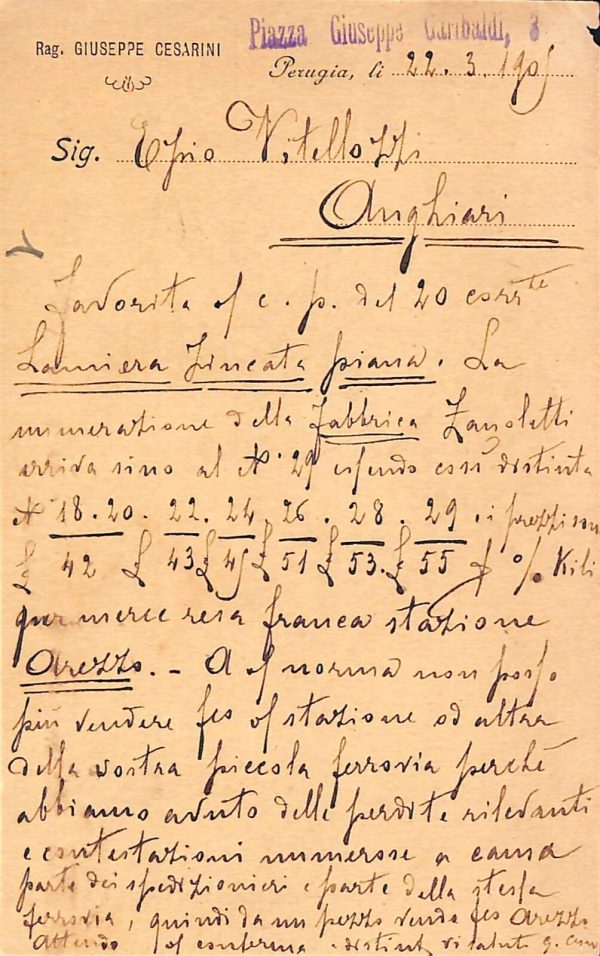 Piazza Giuseppe Garibaldi, 3
Rag. GIUSEPPE CESARINI
Perugia, li 22.3.1905
Sig. Ezio Vitellozzi
Anghiari
Favorita vs/ c.p. del 20 corrte
Lamiera Zincata piana. La
numerazione della Fabbrica Zanoletti
arriva sino al N° 29 essendo così distinta
N° 18.20. 22. 24. 26. 28. 29. i prezzi son
£ 42 £ 43 £ 45 £ 51 £ 53. £ 55 % Kili
per merce resa franca stazione
Arezzo. - A vs/ norma non posso
più vendere fco vs/ stazione od altra
della vostra piccola ferrovia perché
abbiamo avuto delle perdite rilevanti
e contestazioni numerose a causa
parte dei spedizionieri e parte della stessa
ferrovia, quindi da un pezzo vendo fco Arezzo
Attendo vs/ conferma e distint. vi saluto G. Cesar